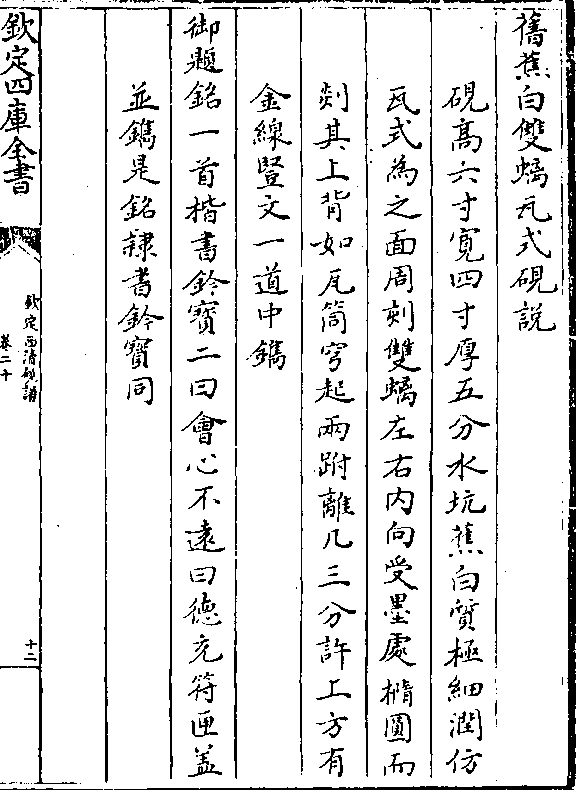 舊蕉白雙螭瓦式硯說
硯高六寸寛四寸厚五分水坑蕉白質極細潤仿
瓦式為之面周刻雙螭左右内向受墨處橢圓而
剡其上背如瓦筒穹起兩跗離几三分許上方有
金線豎文一道中鐫
御題銘一首楷書鈐寶二曰㑹心不逺曰徳充符匣盖
並鐫是銘隷書鈐寶同
欽定四庫全書
欽定西清硯譜
卷二十
十二